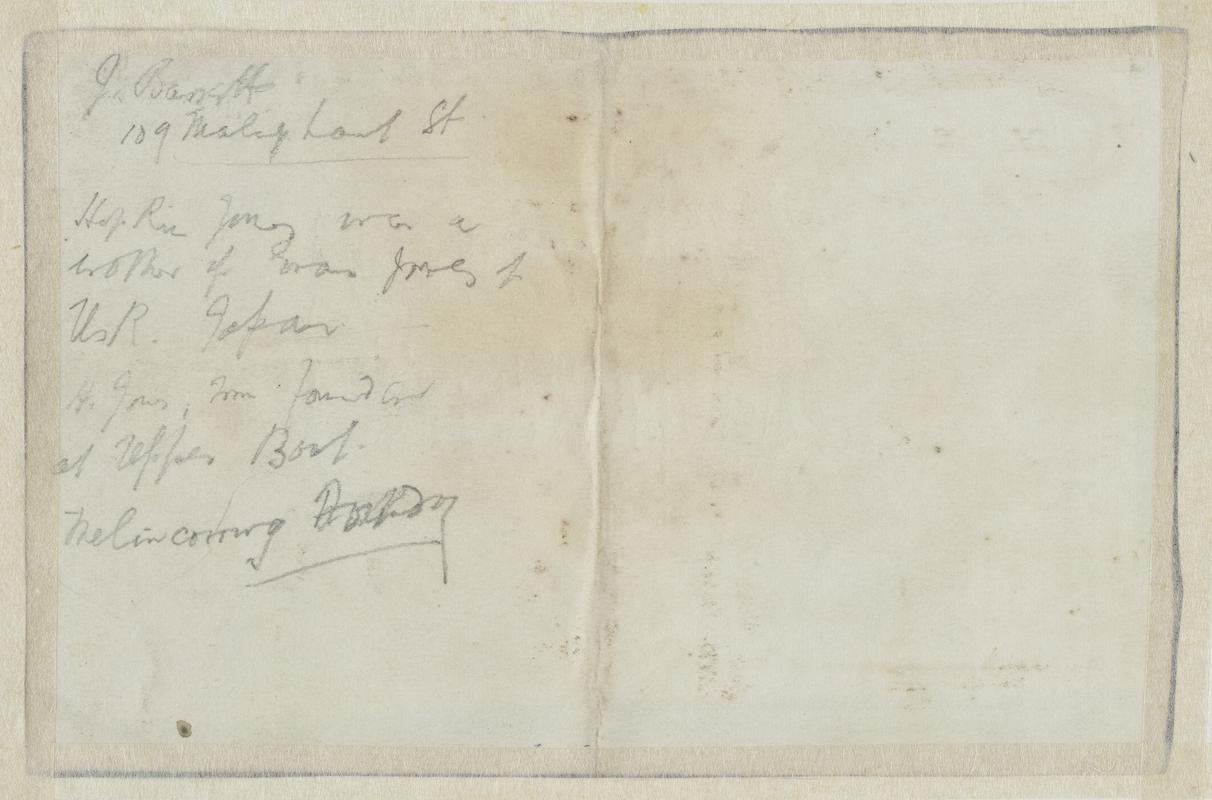 J. Barrett
109 Maliphant St
Hopkin Jones was a
brother of Evan Jones of
Usk. Japan
H. Jones, Iron founder
at Upper Boat.
Melincorrwg